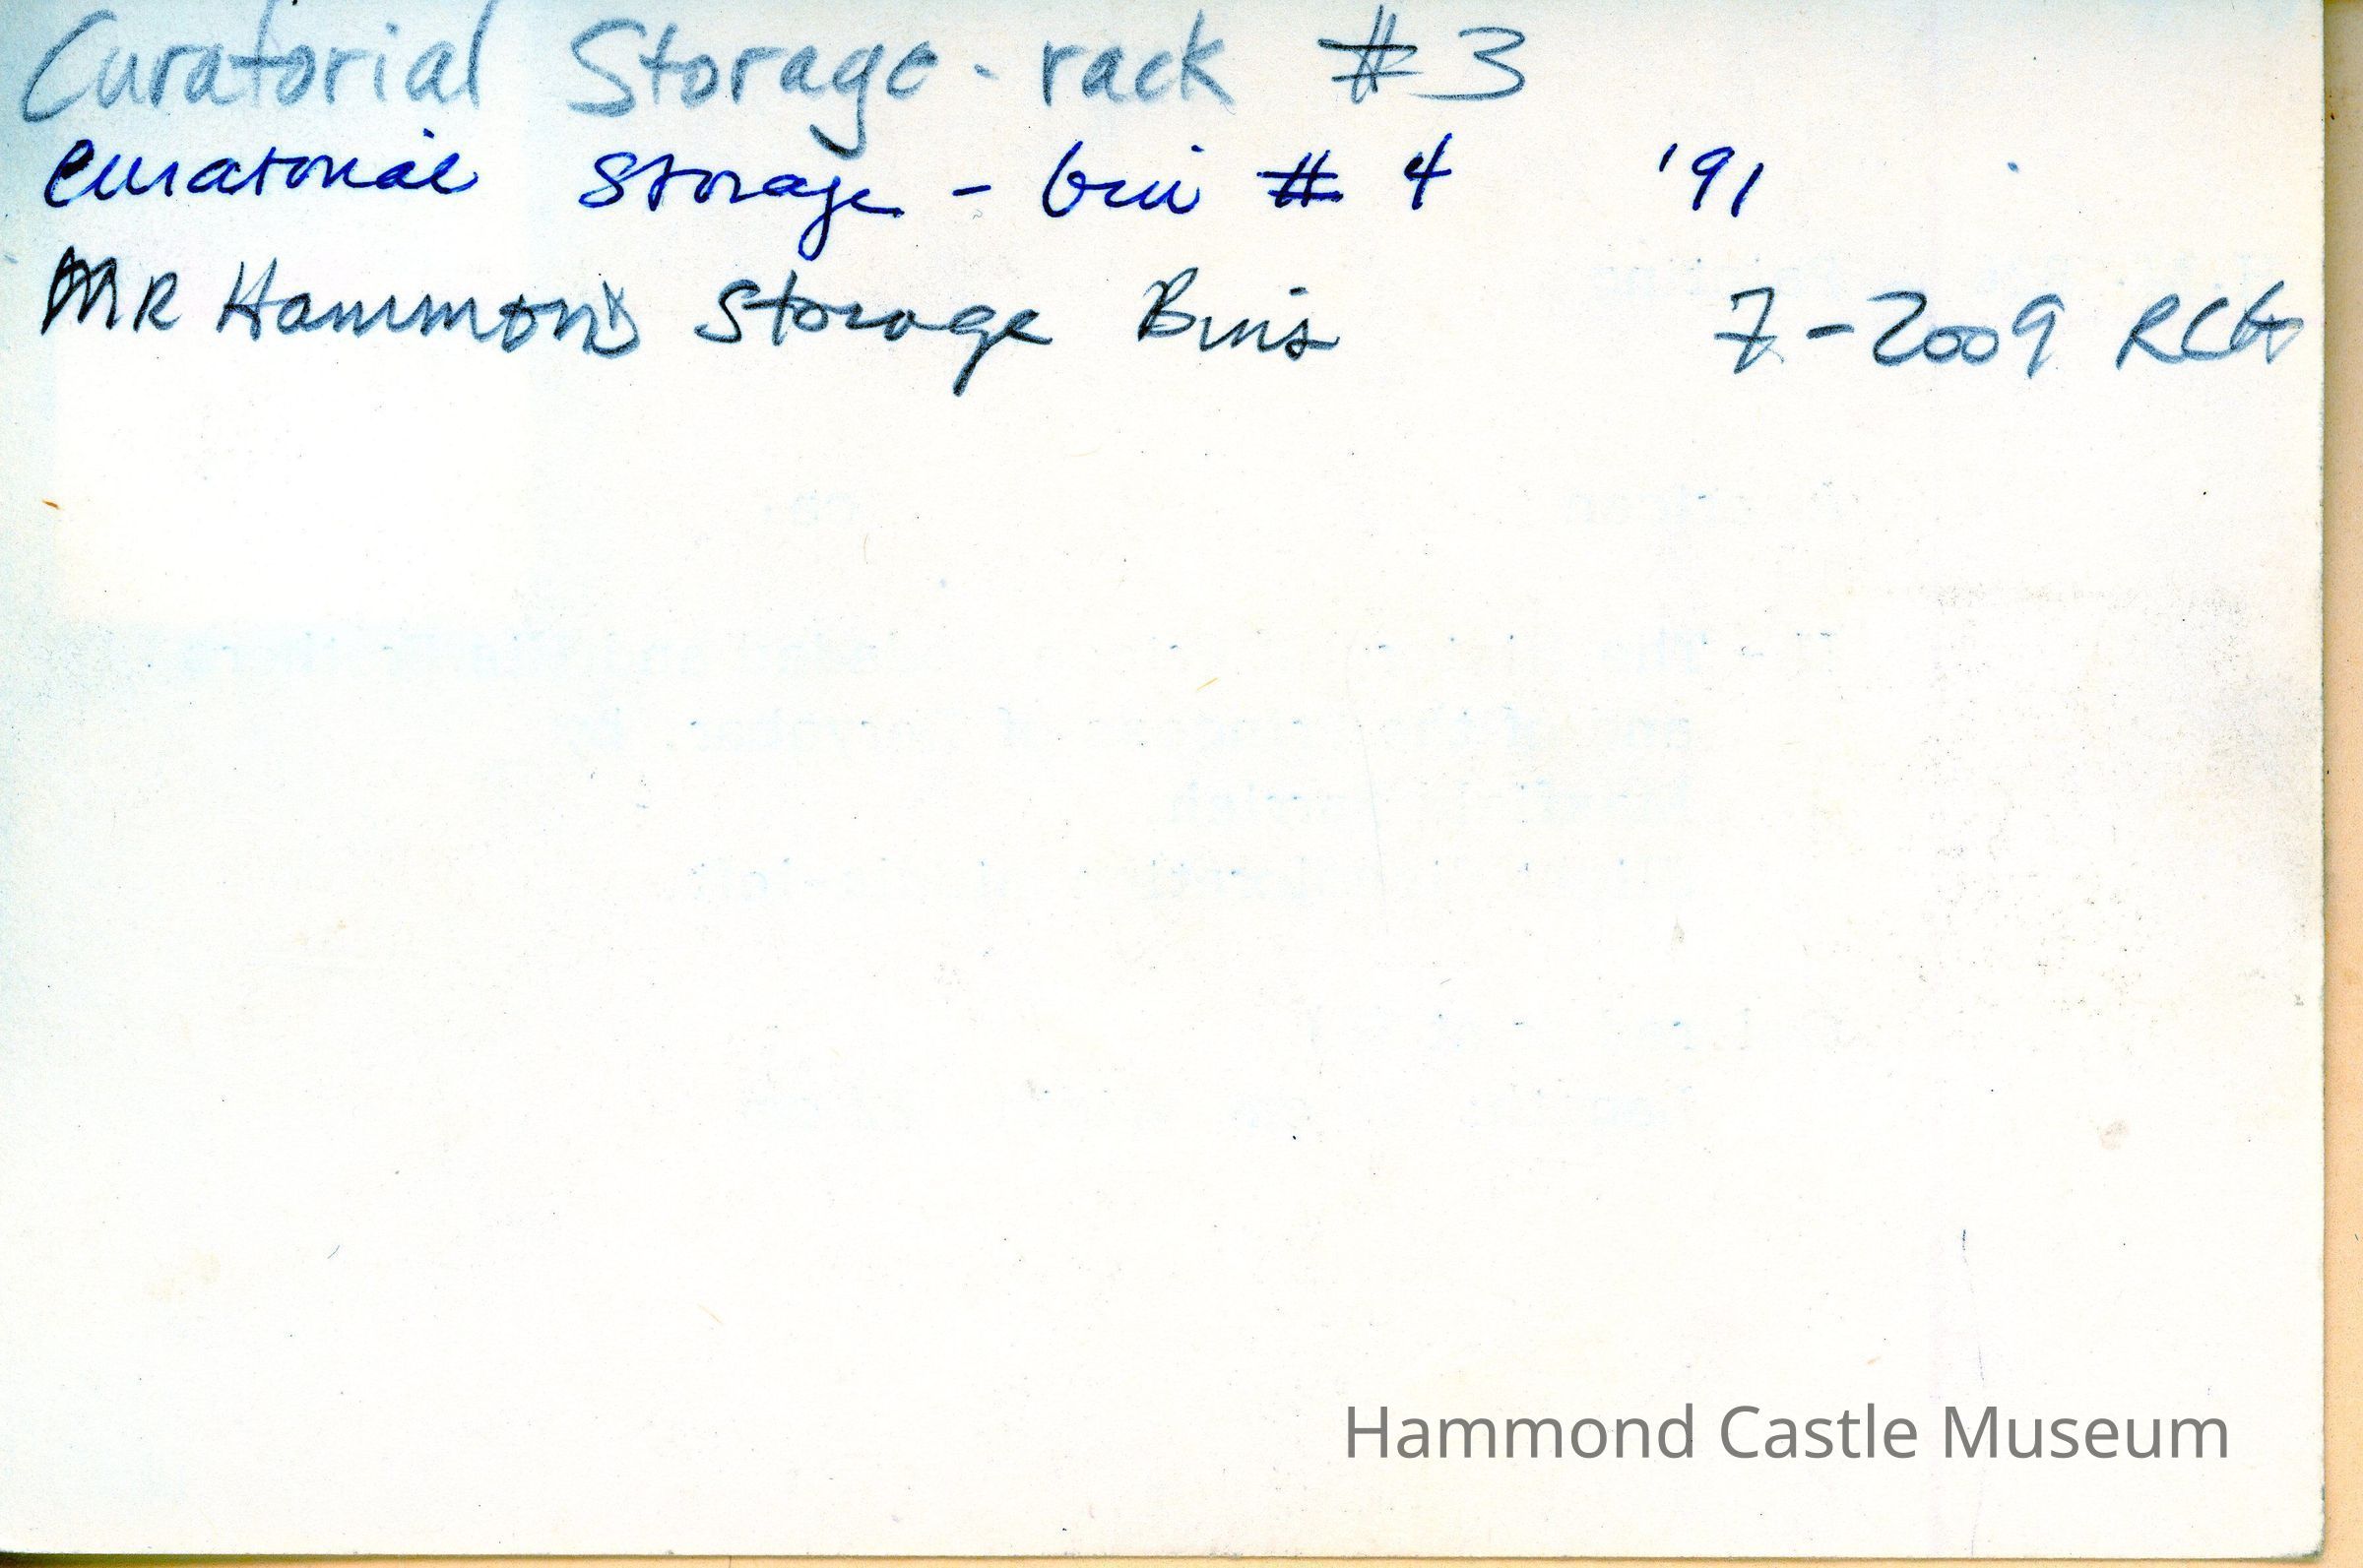 Curatorial Storage - rack #3
Curatorial Storage - bin # 4 '91
MR Hammond's Storage Bins 7-2009 RCH
Hammond Castle Museum